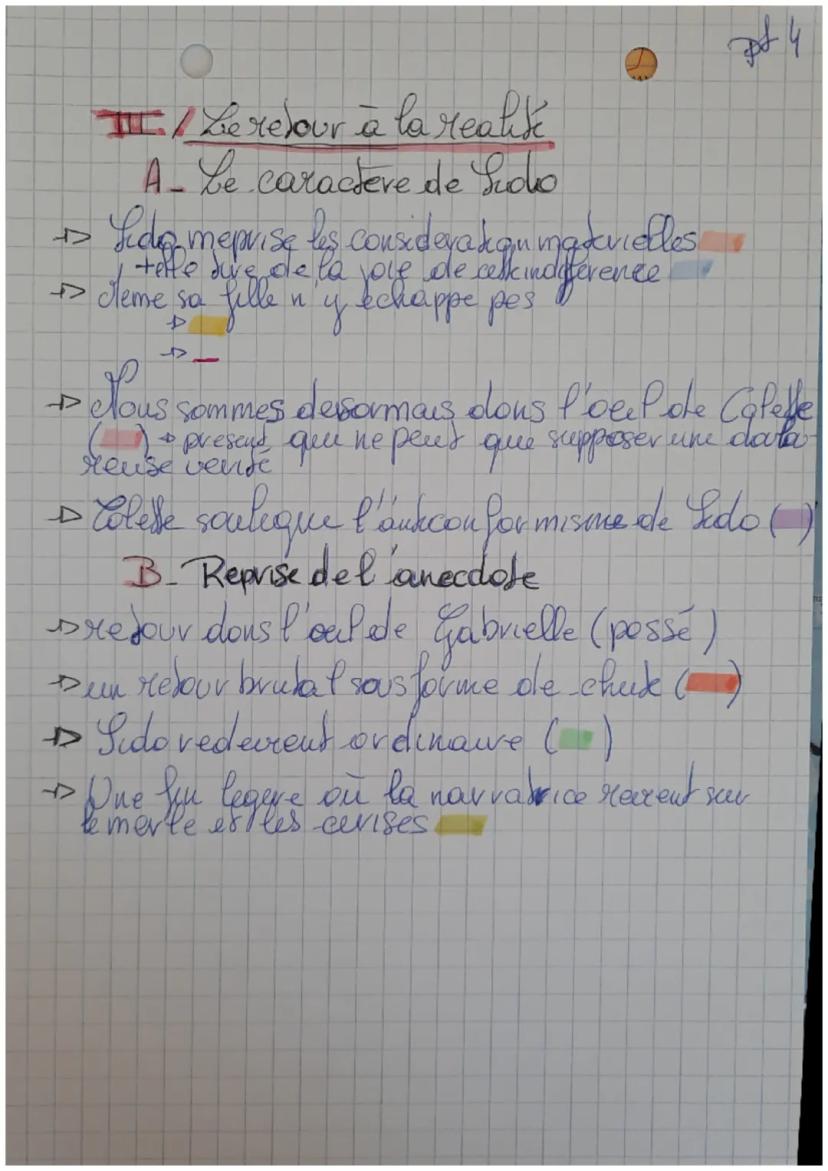 pt 4
III / Le retour à la réalité
A - Le caractère de Sido
→ Sido méprise les considération matérielles
+ elle tire de la joie de cette indiférence
→ Meme sa fille n'y echappe pas
→
→ _
→ Nous sommes desormais dans l'oeil de Colette
( ) → present que ne peut que supposer une
reuse verité
→ Colette souligne l'anticonformisme de Sido ( )
B - Reprise de l'anecdote
→ retour dans l'oeil de Gabrielle (passé)
→ un retour brutal sous forme de chute ( )
→ Sido redevient ordinaire ( )
→ Une fin legere où la narratrice revient sur
le merle et les cerises